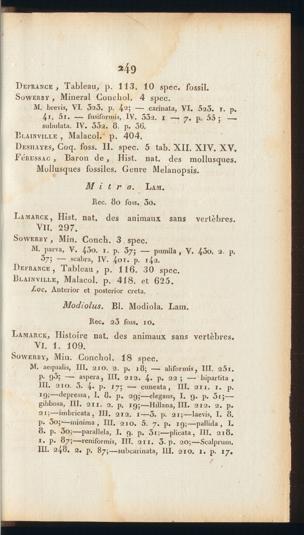 249
DEFRANCE, Tableau, p. 113. 10 spec. fossil.
SOWERBY, Mineral Conchol. 4 spec.
M. brevis, VI. 523. p. 42; — carinata, VI. 523. 1. p.
41, 51. — fusiformis, IV. 332. 1 — 7. p. 55; —
subulata. IV. 332. 8. p. 36.
BLAINVILLE, Malacol. p. 404.
DESHAYES, Coq. foss. II. spec. 5 tab. XII. XIV. XV.
FÉRUSSAC, Baron de, Hist. nat. des mollusques.
Mollusques fossiles. Genre Melanopsis.
Mitra. LAM.
Rec. 80 foss. 30.
LAMARCK, Hist. nat. des animaux sans vertèbres.
VII. 297.
SOWERBY, Min. Conch. 3 spec.
M. parva, V. 430. 1. p. 37; — pumila, V. 430. 2. p.
37; — scabra, IV. 401. p. 142.
DEFRANCE, Tableau, p. 116. 30 spec.
BLAINVILLE, Malacol. p. 418. et 625.
Loc. Anterior et posterior creta.
Modiolus. Bl. Modiola. Lam.
Rec. 23 foss. 10.
LAMARCK, Histoire nat. des animaux sans vertèbres.
VI. 1. 109.
SOWERBY, Min. Conchol. 18 spec.
M. aequalis, III. 210. 2. p. 18; — aliformis, III. 251.
p. 93; — aspera, III. 212. 4. p. 22; — bipartita,
III. 210. 3. 4. p. 17; — cuneata, III. 211. 1. p.
19;—depressa, I. 8. p. 29;—elegans, I. 9. p. 31;—
gibbosa, III. 211. 2. p. 19;—Hillana, III. 212. 2. p.
21;—imbricata, III. 212. 1—3. p. 21;—laevis, I. 8.
p. 30;—minima, III. 210. 5. 7. p. 19;—pallida, I.
8. p. 30;—parallela, I. 9. p. 31;—plicata, III. 218.
1. p. 87;—reniformis, III. 211. 3. p. 20;—Scalprum,
III. 248. 2. p. 87;—subcarinata, III. 210. 1. p. 17.